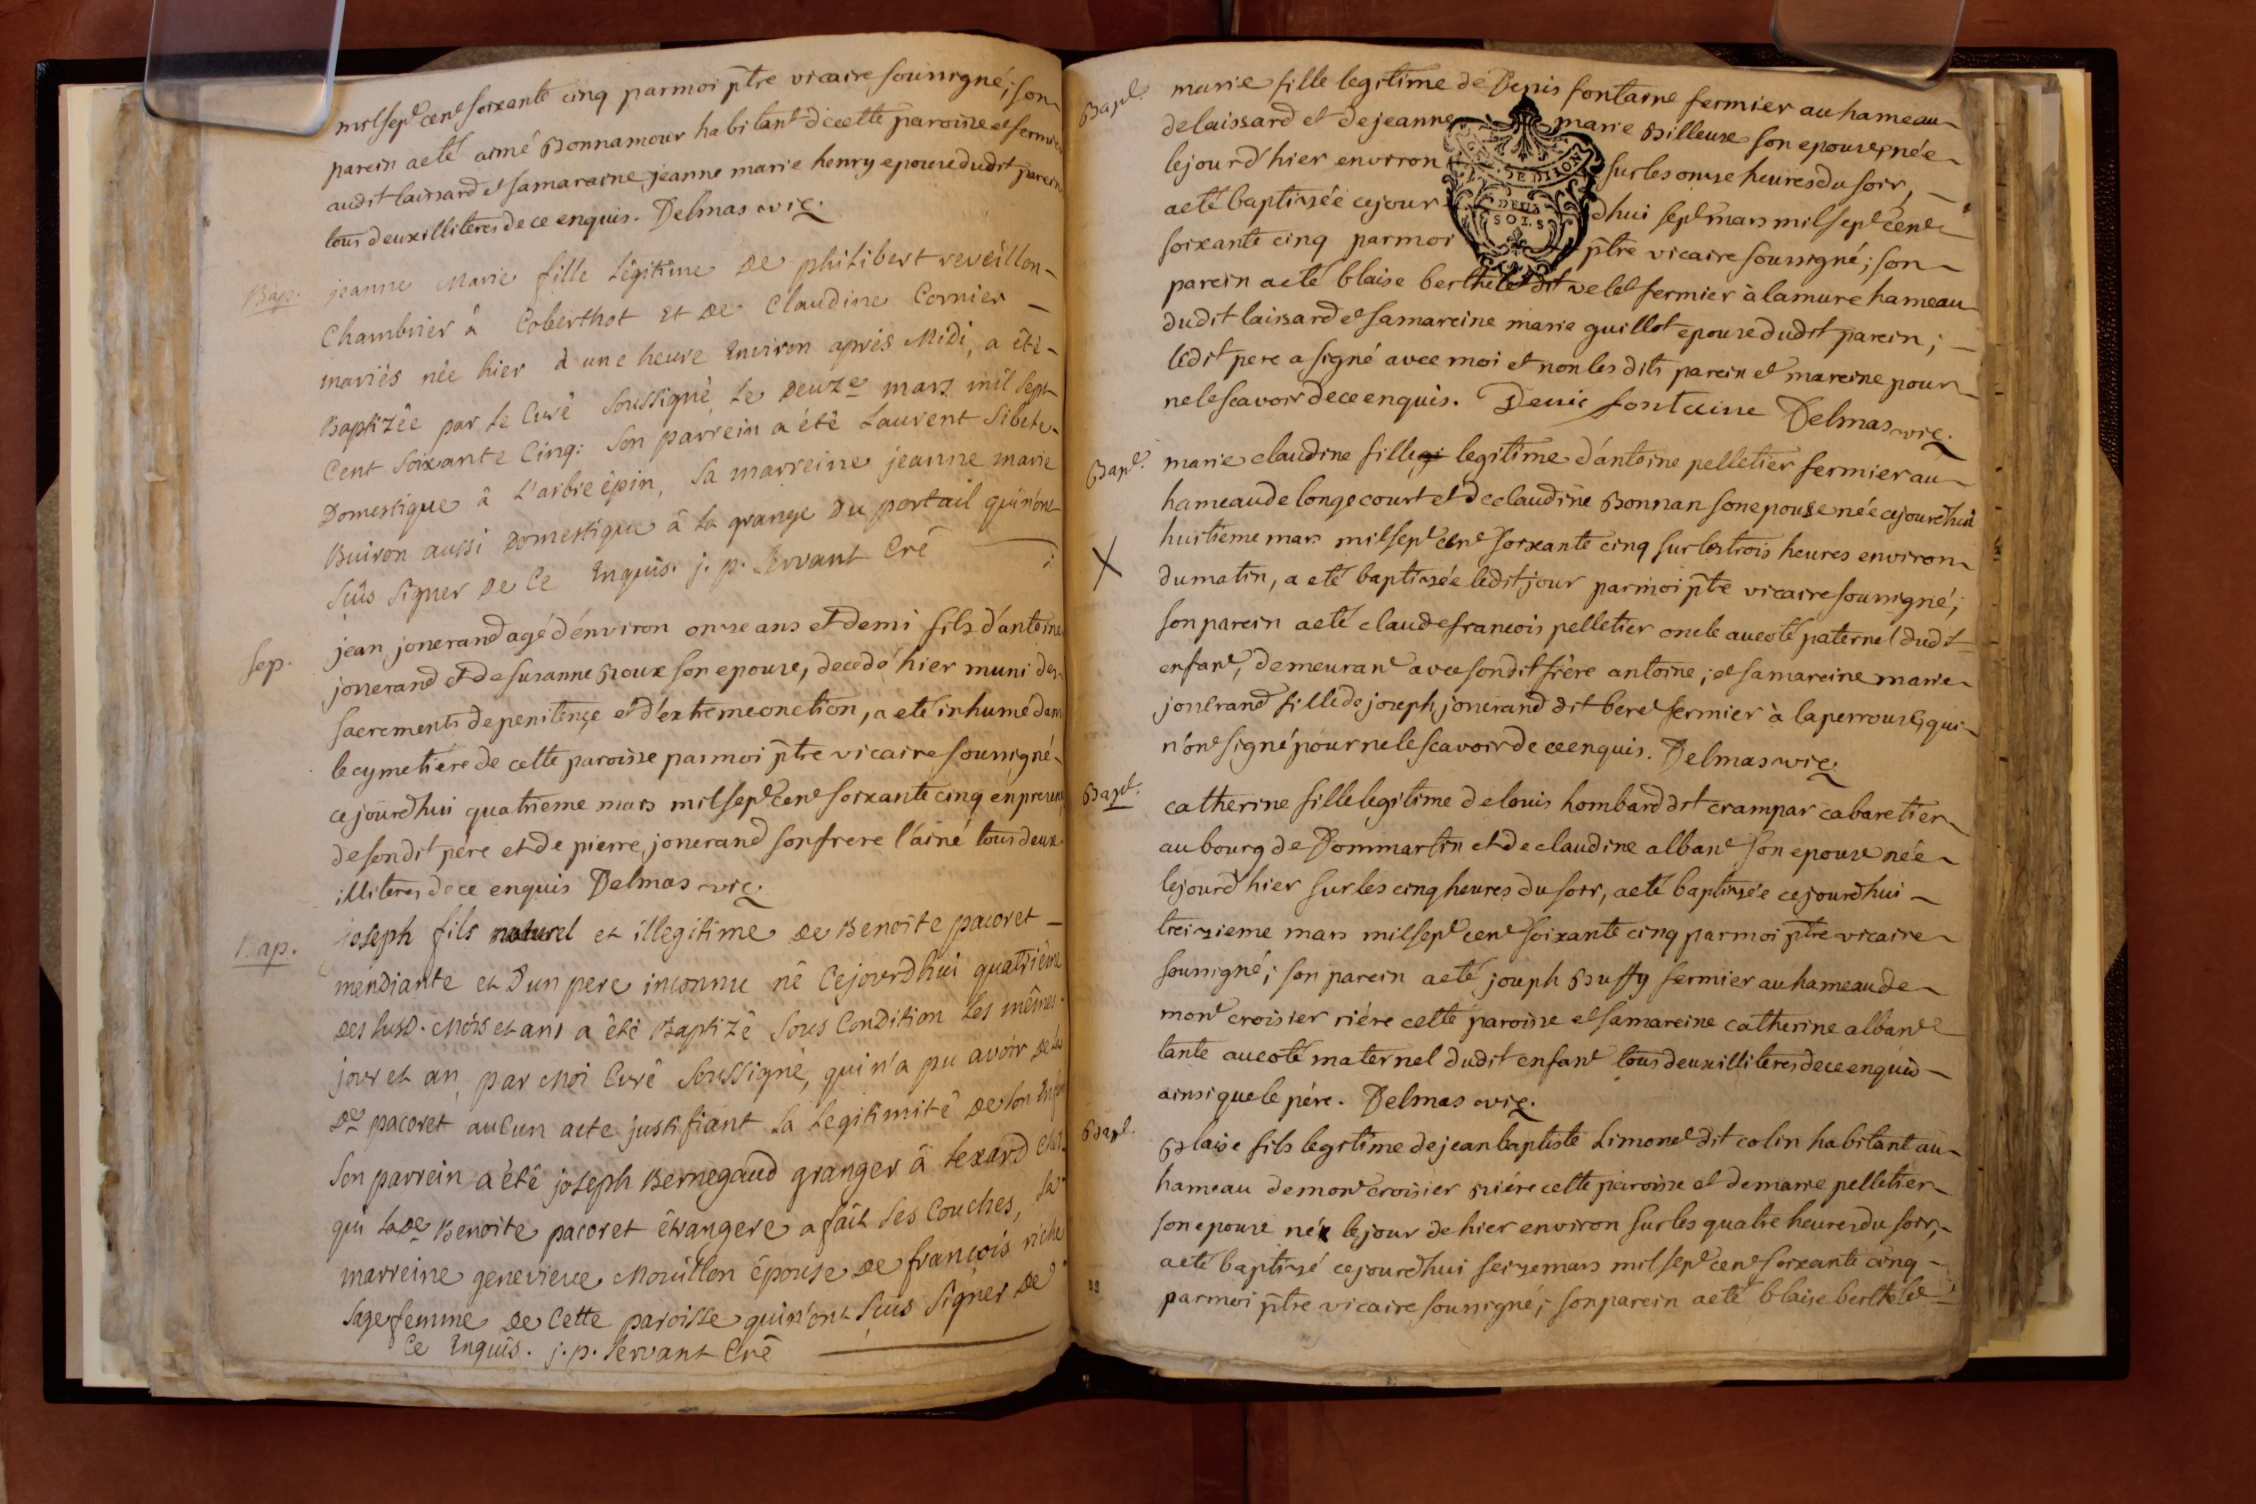 milsept cent soixante cinq parmoi ptre vicaire soussigné; son
parein aeté aimé Bonnamour habitant decette paroisse et fermier
audit laissard et samaraine jeanne marie henry epouse dudit parein
tous deux illiteres de ce enquis. Delmas vic.
Bap. jeanne Marie fille Légitime De philibert reveillon
Chambrier â Coberthot Et De Claudine Cornier
mariés née hier à une heure Environ après Midi, a êtê
Baptizée par Le Curé Soussigné Le Deuze mars mil Sept
Cent Soixante Cinq: Son parrein a été Laurent Sibete
Domestique â L'arbre épin, Sa marreine jeanne marie
Buiron aussi Domestique â La grange Du portail quin'ont
Sçus Signer De Ce Enquis. j. p. Servant Cré
Sep. jean jonerand agé d'environ onze ans et demi fils d'antoine
jonerand et de susanne Roux son epouse, decedé hier muni des
sacrements de penitençe et d'extremeonction, a eté inhumé dans
le cymetiére de cette paroisse parmoi ptre vicaire soussigné
cejourdhui quatrieme mars milsept cent soixante cinq en presence
desondit pére et de pierre jonerand sonfrere l'ainé tous deux
illiteres de ce enquis Delmas vic.
Bap. joseph fils naturel et illegitime De Benoite pacoret
mendiante et D'un pere inconnu né Cejourdhui quatrième
Des Susd. Mois et ans a êtê Baptizé Sous Condition Les mêmes
jour et an, par Moi Curé Soussigné, qui n'a pu avoir De La
De pacoret aucun acte justifiant La Legitimité De Son Enfant
Son parrein a été joseph Bernegaud granger â Lexard Chez
qui La De Benoite pacoret étrangere a fait Ses Couches, Sa
marreine genevieve Mouillon épouse De françois riche
Sagefemme De Cette paroisse quin'ont Sçus Signer De
Ce Enquis. j. p. Servant Cré
Bapt. marie fille legitime de Denis fontaine fermier au hameau
delaissard et dejeanne marie Billeux son epouse, née
lejourd'hier environ sur les onze heures du soir,
aeté baptisée cejour dhui sept mars mil sept cent
soixante cinq parmoi ptre vicaire soussigné; son
DE DIJON
DEUX
SOLS
parein aeté blaise berthelet dit velet fermier à lamure hameau
dudit laissard et samareine marie guillot epouse dudit parein;
ledit pere a signé avec moi et non les dits parein et mareine pour
nelescavoir de ce enquis. Denis fontaine Delmas vic.
Bapt. marie claudine fille legitime d'antoine pelletier fermier au
hameau de longecourt et declaudine Bonnan sonepouse née cejourdhui
huitieme mars milsept cent soixante cinq sur lestrois heures environ
du matin, a eté baptisée ledit jour parmoi ptre vicaire soussigné;
X
son parein aeté claude francois pelletier oncle aucoté paternel dudit
enfant, demeurant avec sondit frère antoine; et samareine marie
jonerand fille de joseph jonerand dit beret fermier à laperrouse, qui
n'ont signé pour nelescavoir de ce enquis. Delmas vic.
Bapt. catherine fille legitime de louis hombard dit crampar cabaretier
au bourg de Dommartin et de claudine albant son epouse née
lejourd'hier sur les cinq heures du soir, aeté baptisée cejourdhui
treizieme mars milsept cent soixante cinq parmoi ptre vicaire
soussigné; son parein aeté joseph Buffy fermier au hameau de
mont croisier riére cette paroisse et samareine catherine albant
tante aucoté maternel dudit enfant tous deux illiteres de ce enquis
ainsi que le pére. Delmas vic.
Bapt. Blaise fils legitime de jean baptiste Limonet dit colin habitant au
hameau demont croisier riére cette paroisse et demarie pelletier
son epouse né le jour de hier environ sur les quatre heures du soir,
aeté baptisé cejourdhui seize mars mil sept cent soixante cinq
parmoi ptre vicaire soussigné; son parein aeté blaise berthelet